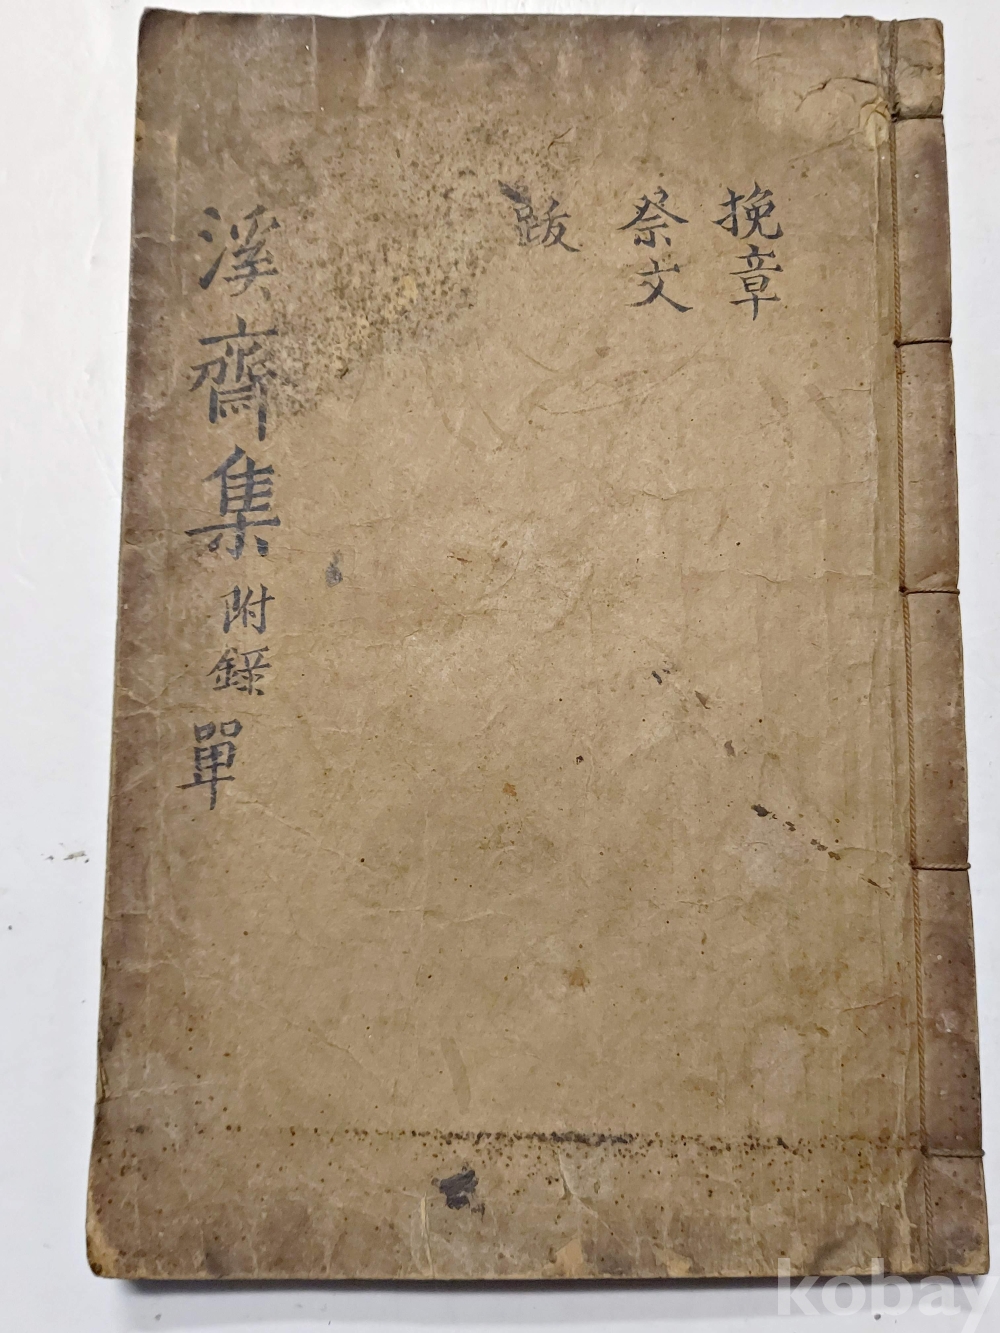 挽章
祭文
跋
溪齋集 附錄 單
kobay